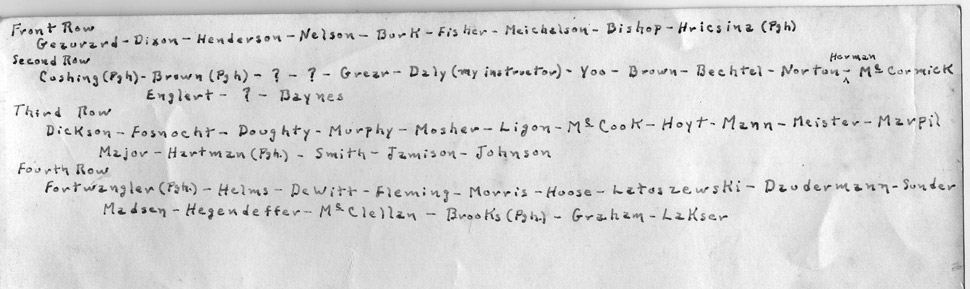 Front Row
Gezurard - Dixon - Henderson - Nelson - Burk - Fisher - Meichelson - Bishop - Hricsina (Pgh)
Second Row
Cushing (Pgh) - Brown (Pgh) - ? - ? - Grear - Daly (my instructor) - Yoo - Brown - Bechtel - Norton - ^ Herman McCormick
Englert - ? - Baynes
Third Row
Dickson - Fosnocht - Doughty - Murphy - Mosher - Ligon - McCook - Hoyt - Mann - Meister - Marpil
Major - Hartman (Pgh.) - Smith - Jamison - Johnson
Fourth Row
Fortwangler (Pgh.) - Helms - DeWitt - Fleming - Morris - Hoose - Latoszewski - Daudermann - Sunder
Madsen - Hegendeffer - McClellan - Brooks (Pgh.) - Graham - Lakser